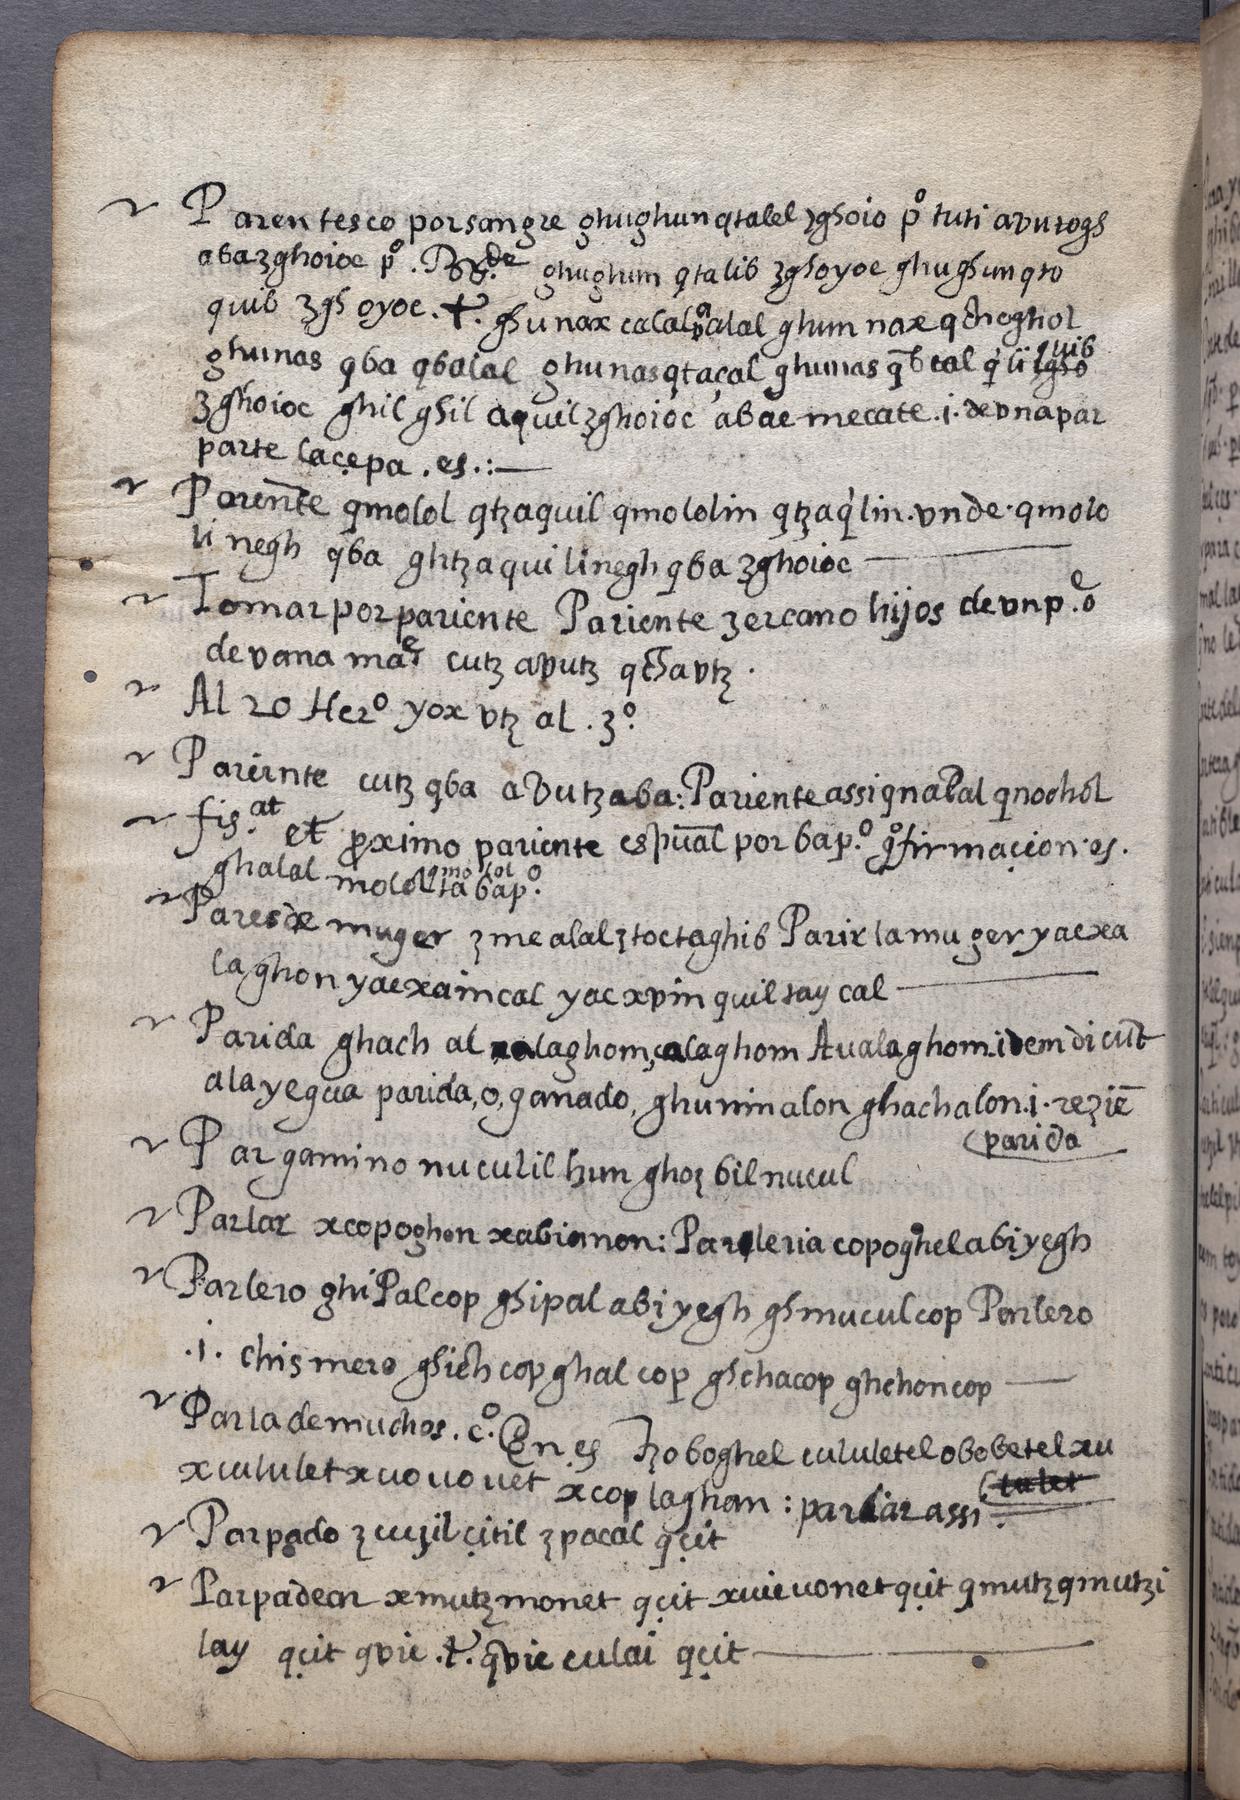 Parentesco por sangre ghughun qtalel zghoio pº tuti avutogh
abazghoioc pº. ghughum qtalib zghoyoc ghughun qto
quib zgh oyoc. t. ghunax calal alal ghum nax qchoghol
ghunas qba qbalal ghunas qtaçal ghunas q̄b cal q li quib
zghoioc ghil ghil aquil zghoioc abac mecate .i. de vna par
parte laçepa . es .:—
Pariēnte qmolol qtzaquil qmololin qtzaq'lin. vnde. qmolo
li negh qba ghtzaquilinegh qba zghoioc —
Tomar por pariente Pariente zercano hijos de vn p.e o
de vana mae cutz avutz qchavtz .
Al 20 Herº yox vtz al . 3º.
Parirnte cutz qba avutzaba: Pariente assi qnabal qnochol
fis.at et pximo pariente espūal por bap.º qºfirmaçion. es.
ghalal molol qmolol ta bap.º
Pares de muger zme alal ztoctaghib Parir la muger yacxa
laghon yacxaincal yac xvin quil tay cal —
Parida ghach al laghom, calaghom Aualaghom .idem dicūt
a la yegua parida, o, ganado, ghunin alon ghachalon .i. reziē
(parida
Pargamino nuculil hun ghoz bil nucul
Parlar xcopoghon xabiomon: Parleria copoghel abiyegh
Parlero ghi Pal cop ghipal abiyegh ghmucul cop Parlero
.i. chismero ghich cop ghal cop ghchacop ghchon cop —
Parla de muchos. cº. En es tzoboghel cululetel obobetel xu
xcululet xuououet xcop laghon : parlar assi.
Parpado zcuzil çitil zpacal qçit
Parpadear xmutzmonet qçit xuicuonet qçit qmutzqmutzi
lay qçit qvic .t. qvic culai qçit —